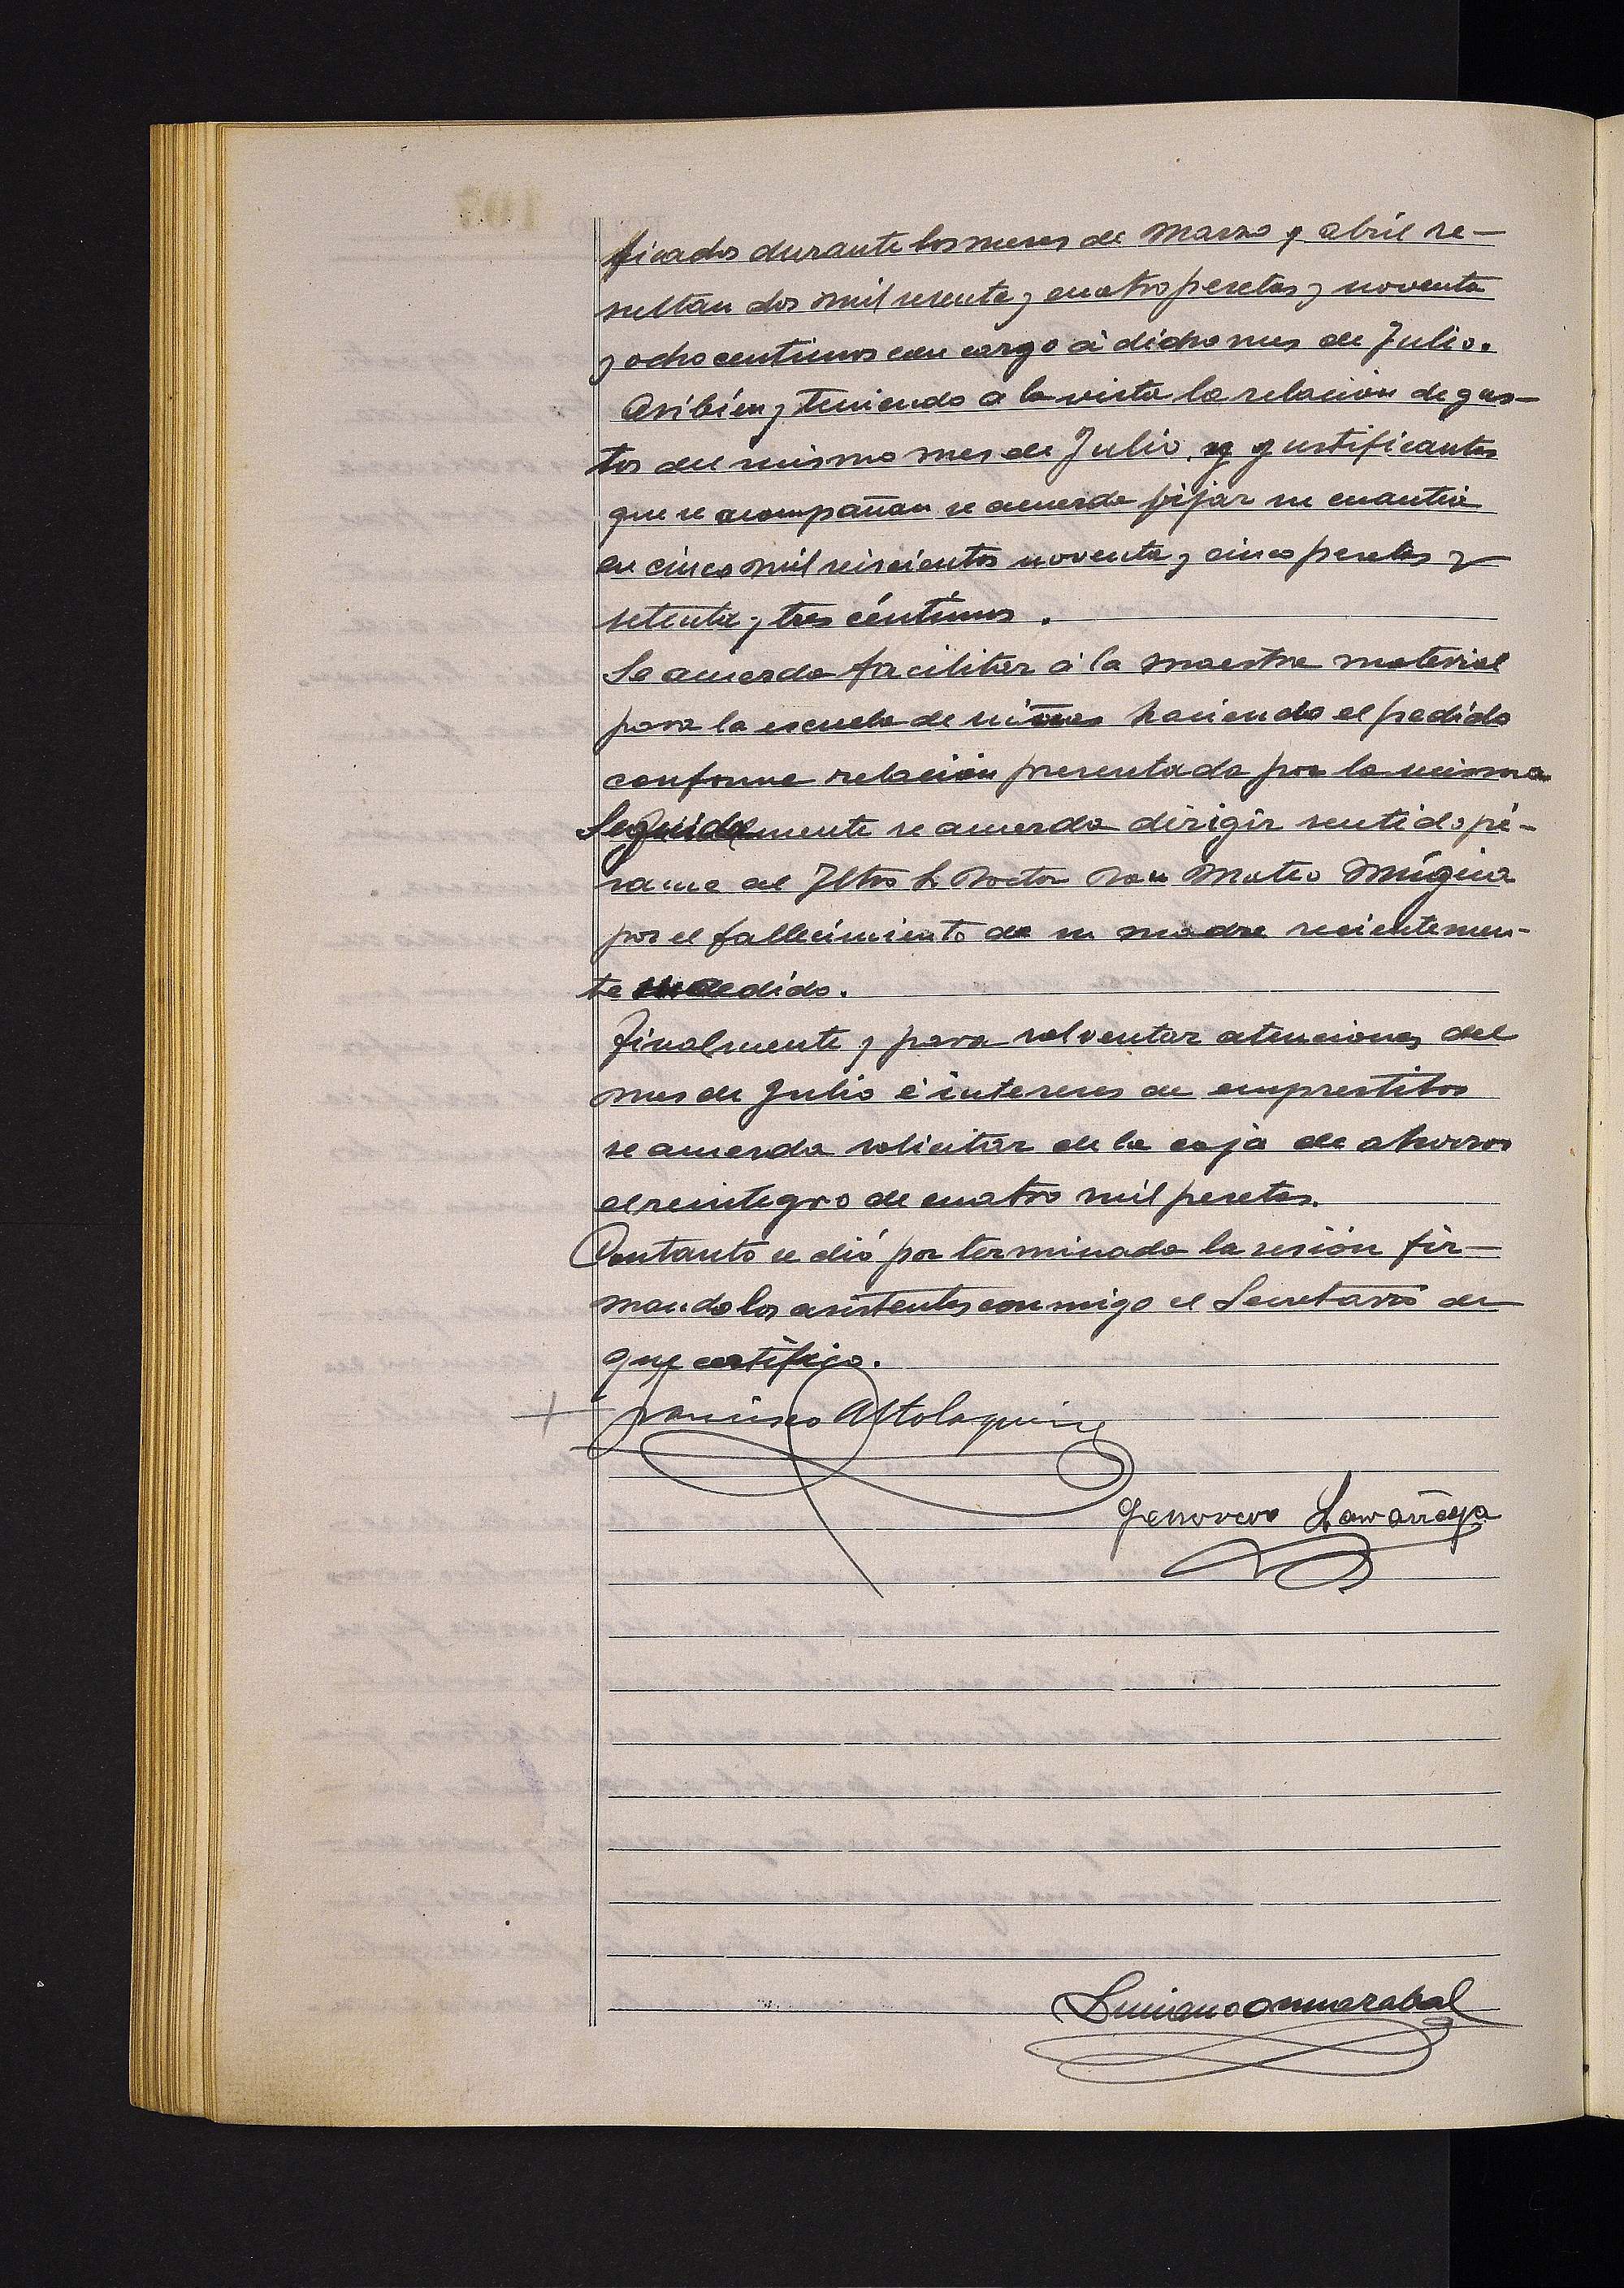 ficados durante los meses de Marzo y abril re-
sultan dos mil sesenta y cuatro pesetas y noventa
y ocho centimos con cargo á dicho mes de Julio.
Asibien y teniendo a la vista la relación de gas-
tos del mismo mes de Julio, y justificantes
que se acompañan se acuerda fijar su cuantía
en cinco mil seiscientos noventa y cinco pesetas y
setenta y tres céntimos.
Se acuerda facilitar á la maestra material
para la escuela de niñas haciendo el pedido
conforme relación presentada por la misma
Seguidamente se acuerda dirigir sentido pé-
same al Iltro Sr Doctor Don Mateo Múgica
por el fallecimiento de su madre recientemen-
te sucedido.
Finalmente y para solventar atenciones del
mes de Julio é intereses de emprestitos
se acuerda solicitar de la caja de ahorros
el reintegro de cuatro mil pesetas.
Contanto se dió por terminada la sesión fir-
mando los asistentes conmigo el Secretario de
que certifico.
Francisco Altolaguirre
Genovevo Larrañaga
Luciano Onmarabal